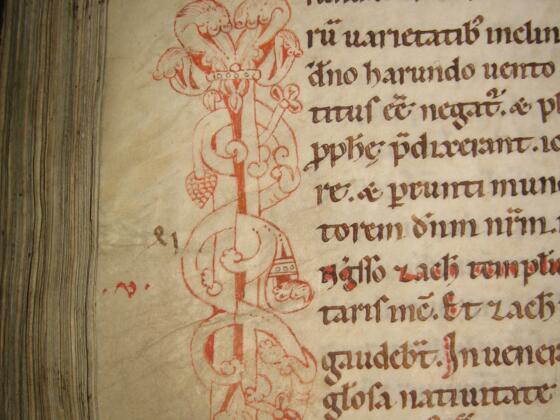 rū uarietatib; inclin
dn̄o harundo uento
titus eē negat᷑. & ph
ꝓphę p̄dixerant. ic
re. & ꝑeunti mun
torem dn̄m nr̄m.
templi
taris inē. Et zach
gaudebt̄. In uener
glosa natiuitate
.v.